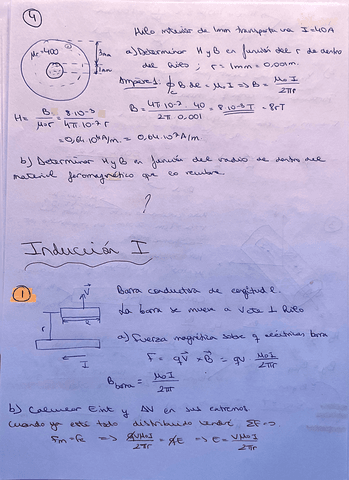 4
Hilo interior de 1mm transporta una I=40A
μr=400
3mm
1mm
a) Determinar H y B en función del r de dentro
del hilo ; r = 1mm = 0,001m.
Ampère: ∮c B dl = μ₀ I => B = μ₀ I / 2πr
H = B / μ₀r = 8·10⁻³ / 4π·10⁻⁷ r
B = 4π·10⁻⁷ · 40 / 2π 0,001 = 8·10⁻³ T
= 0,64·10⁴ A/m. = 0,64·10⁴ A/m
b) Determinar H y B en función del radio de dentro del
material ferromagnético que lo recubre.
?
Inducción I
1
Barra conductora de longitud ℓ.
La barra se mueve a V cte ⊥ hilo
V
ℓ
r
I
a) Fuerza magnética sobre q eléctricas barra
F = qV × B = qv · μ₀I / 2πr
B barra = μ₀I / 2πr
b) Calcular Eint y ΔV en sus extremos
Cuando ya esté todo distribuido tendré ΣF=0
Fm = Fe => qVμ₀I / 2πr = qE => E = Vμ₀I / 2πr